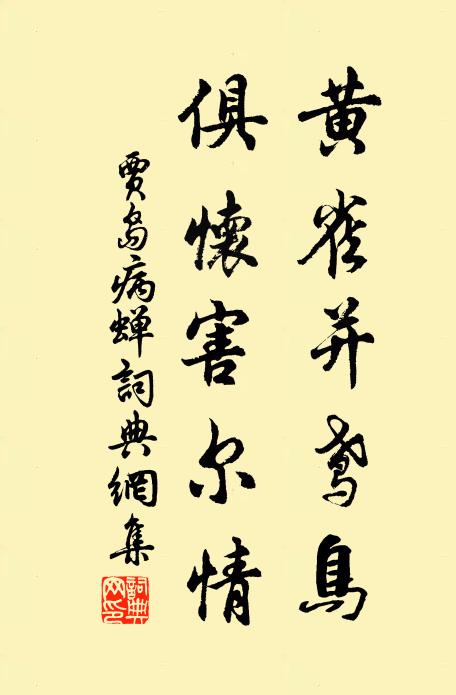 黄雀并鳶鳥
俱懷害尔情
賈島病蝉詞典網集
詞典网印